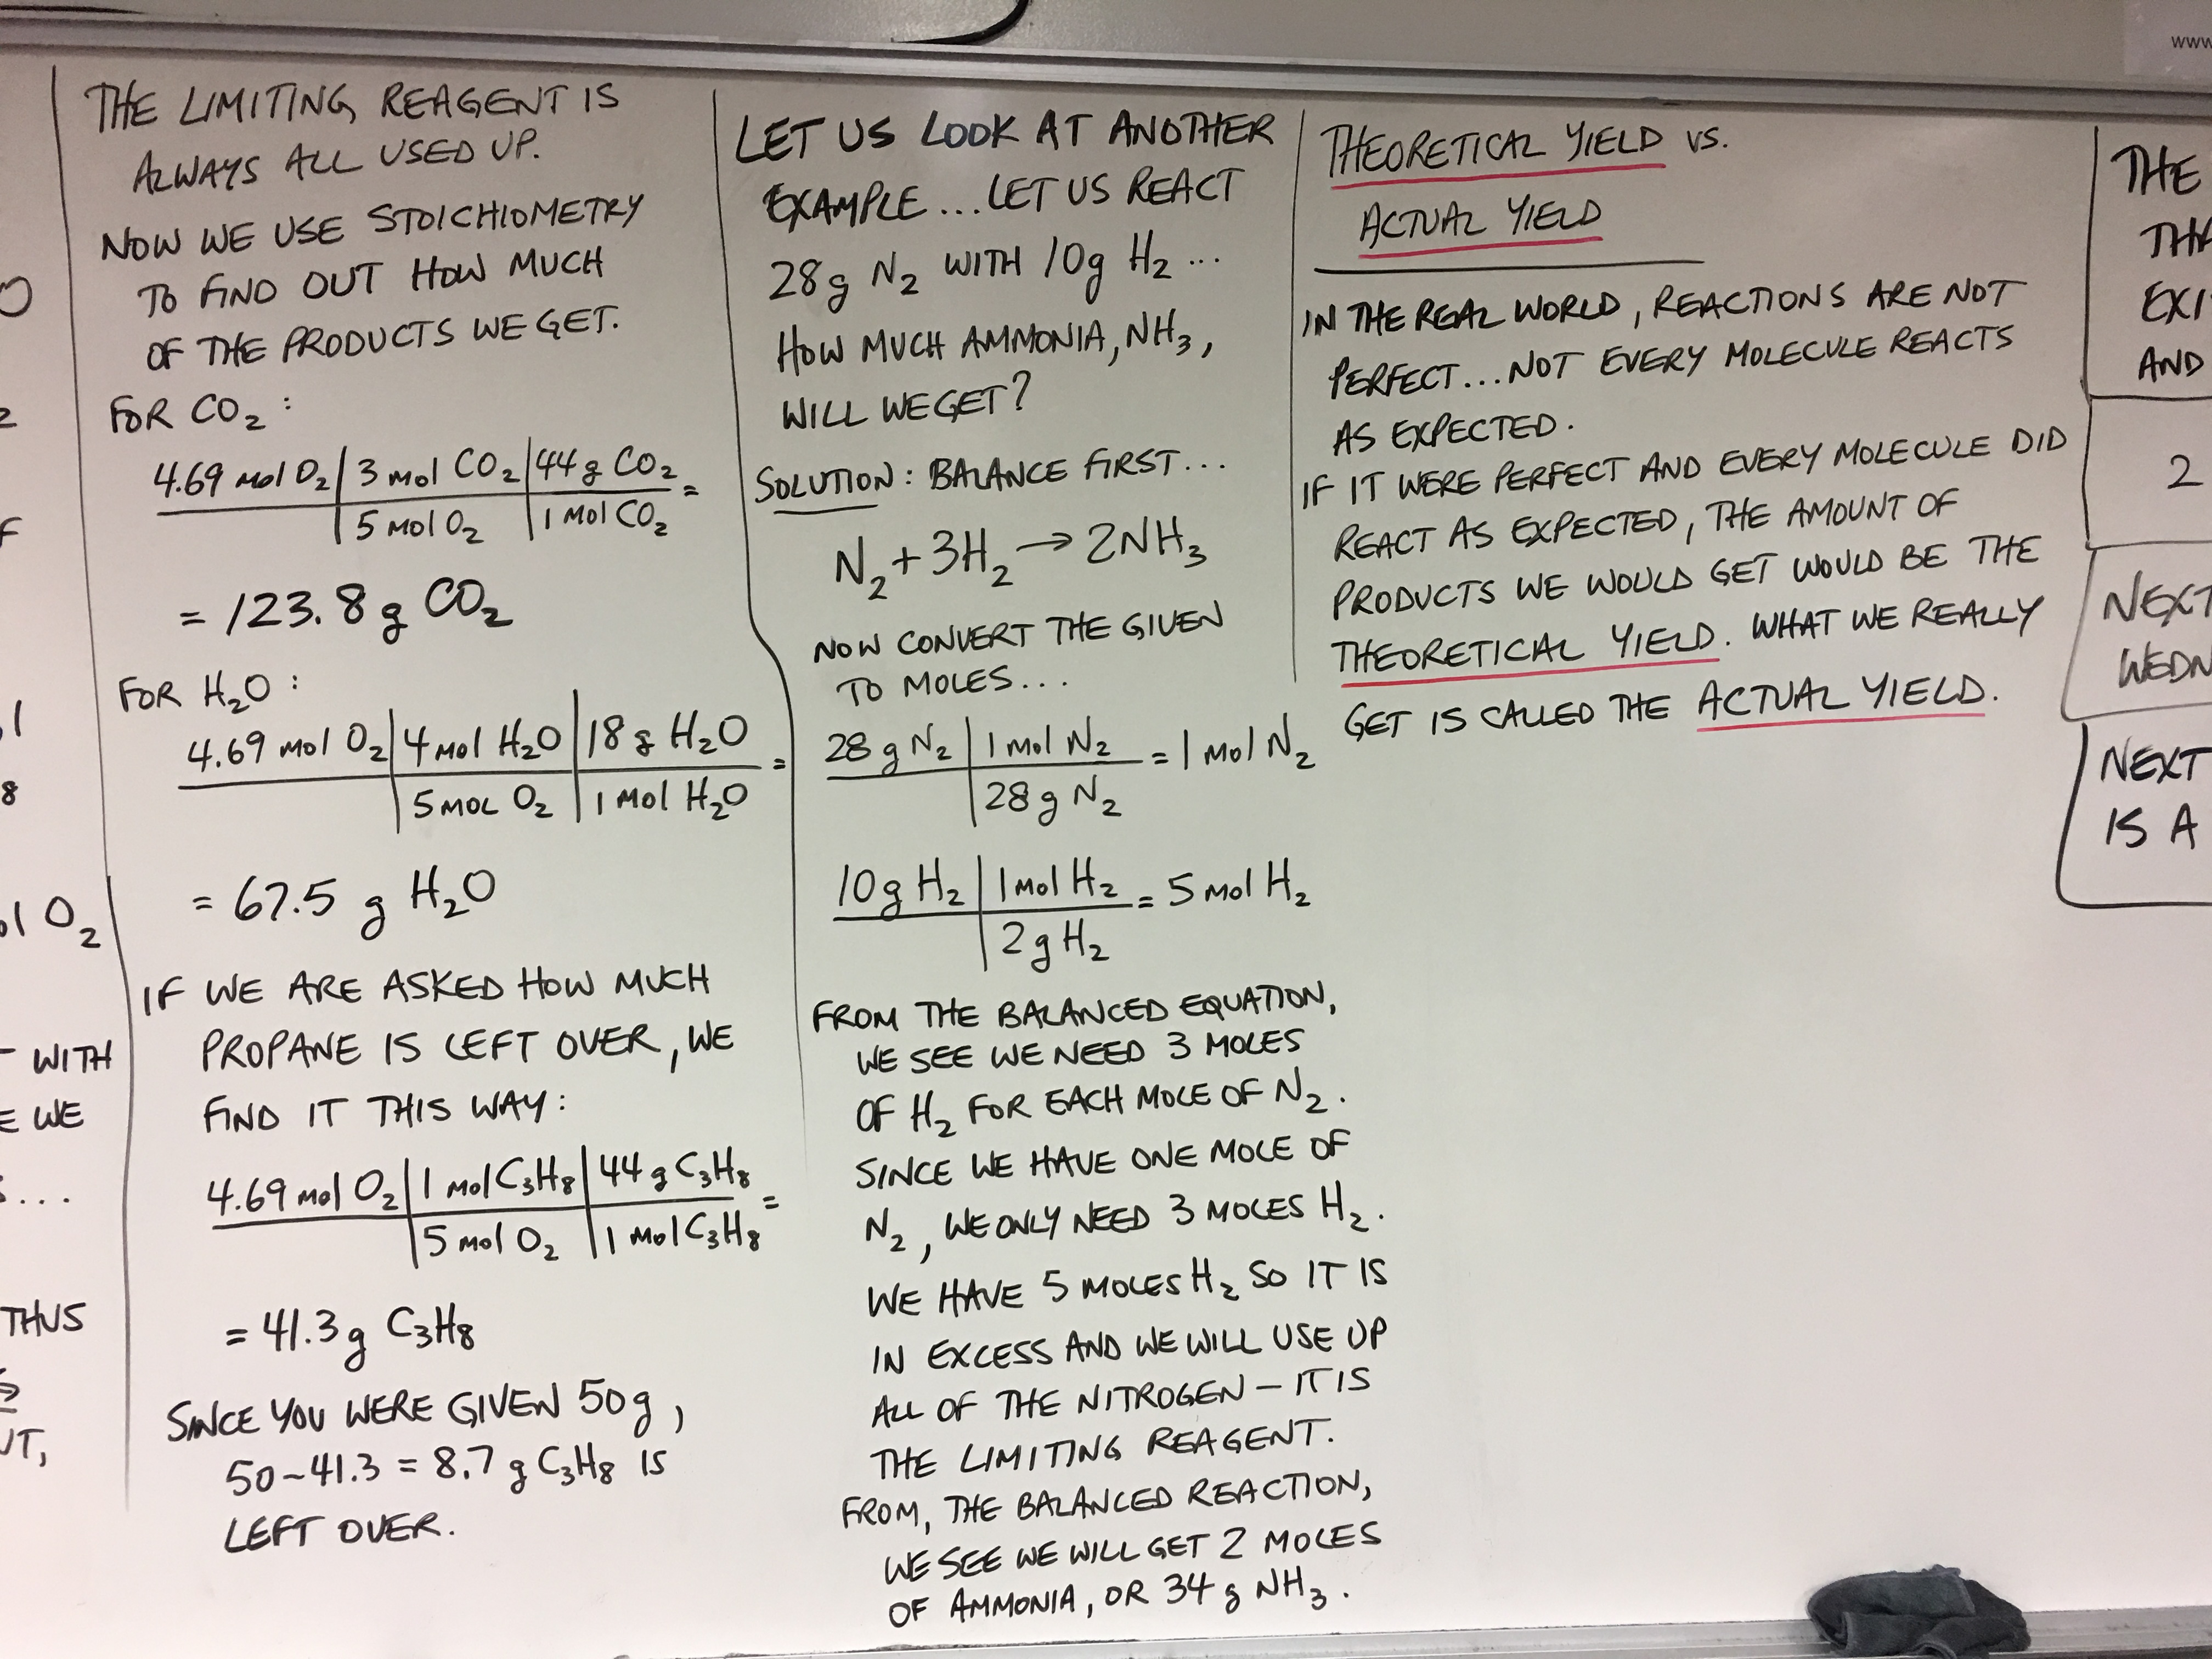 www
O
2
F
1
8
ol O₂
- WITH
E WE
S...
THUS
UT,
THE LIMITING REAGENT IS
ALWAYS ALL USED UP.
NOW WE USE STOICHIOMETRY
TO FIND OUT HOW MUCH
OF THE PRODUCTS WE GET.
FOR CO₂:
4.69 mol O₂ | 3 mol CO₂ | 44 g CO₂ =
5 mol O₂ | 1 mol CO₂
= 123.8 g CO₂
FOR H₂O:
4.69 mol O₂ | 4 mol H₂O | 18 g H₂O =
5 mol O₂ | 1 mol H₂O
= 67.5 g H₂O
IF WE ARE ASKED HOW MUCH
PROPANE IS LEFT OVER, WE
FIND IT THIS WAY:
4.69 mol O₂ | 1 mol C₃H₈ | 44 g C₃H₈ =
5 mol O₂ | 1 mol C₃H₈
= 41.3 g C₃H₈
SINCE YOU WERE GIVEN 50g,
50-41.3 = 8.7 g C₃H₈ IS
LEFT OVER.
LET US LOOK AT ANOTHER
EXAMPLE...LET US REACT
28g N₂ WITH 10g H₂...
HOW MUCH AMMONIA, NH₃,
WILL WE GET?
SOLUTION: BALANCE FIRST...
N₂ + 3H₂ → 2NH₃
NOW CONVERT THE GIVEN
TO MOLES...
28 g N₂ | 1 mol N₂ = 1 mol N₂
28 g N₂
10 g H₂ | 1 mol H₂ = 5 mol H₂
2 g H₂
FROM THE BALANCED EQUATION,
WE SEE WE NEED 3 MOLES
OF H₂ FOR EACH MOLE OF N₂.
SINCE WE HAVE ONE MOLE OF
N₂, WE ONLY NEED 3 MOLES H₂.
WE HAVE 5 MOLES H₂ SO IT IS
IN EXCESS AND WE WILL USE UP
ALL OF THE NITROGEN - IT IS
THE LIMITING REAGENT.
FROM, THE BALANCED REACTION,
WE SEE WE WILL GET 2 MOLES
OF AMMONIA, OR 34 g NH₃.
THEORETICAL YIELD VS.
ACTUAL YIELD
IN THE REAL WORLD, REACTIONS ARE NOT
PERFECT...NOT EVERY MOLECULE REACTS
AS EXPECTED.
IF IT WERE PERFECT AND EVERY MOLECULE DID
REACT AS EXPECTED, THE AMOUNT OF
PRODUCTS WE WOULD GET WOULD BE THE
THEORETICAL YIELD. WHAT WE REALLY
GET IS CALLED THE ACTUAL YIELD.
THE
THA
EXI
AND
2
NEXT
WEDN
NEXT
IS A